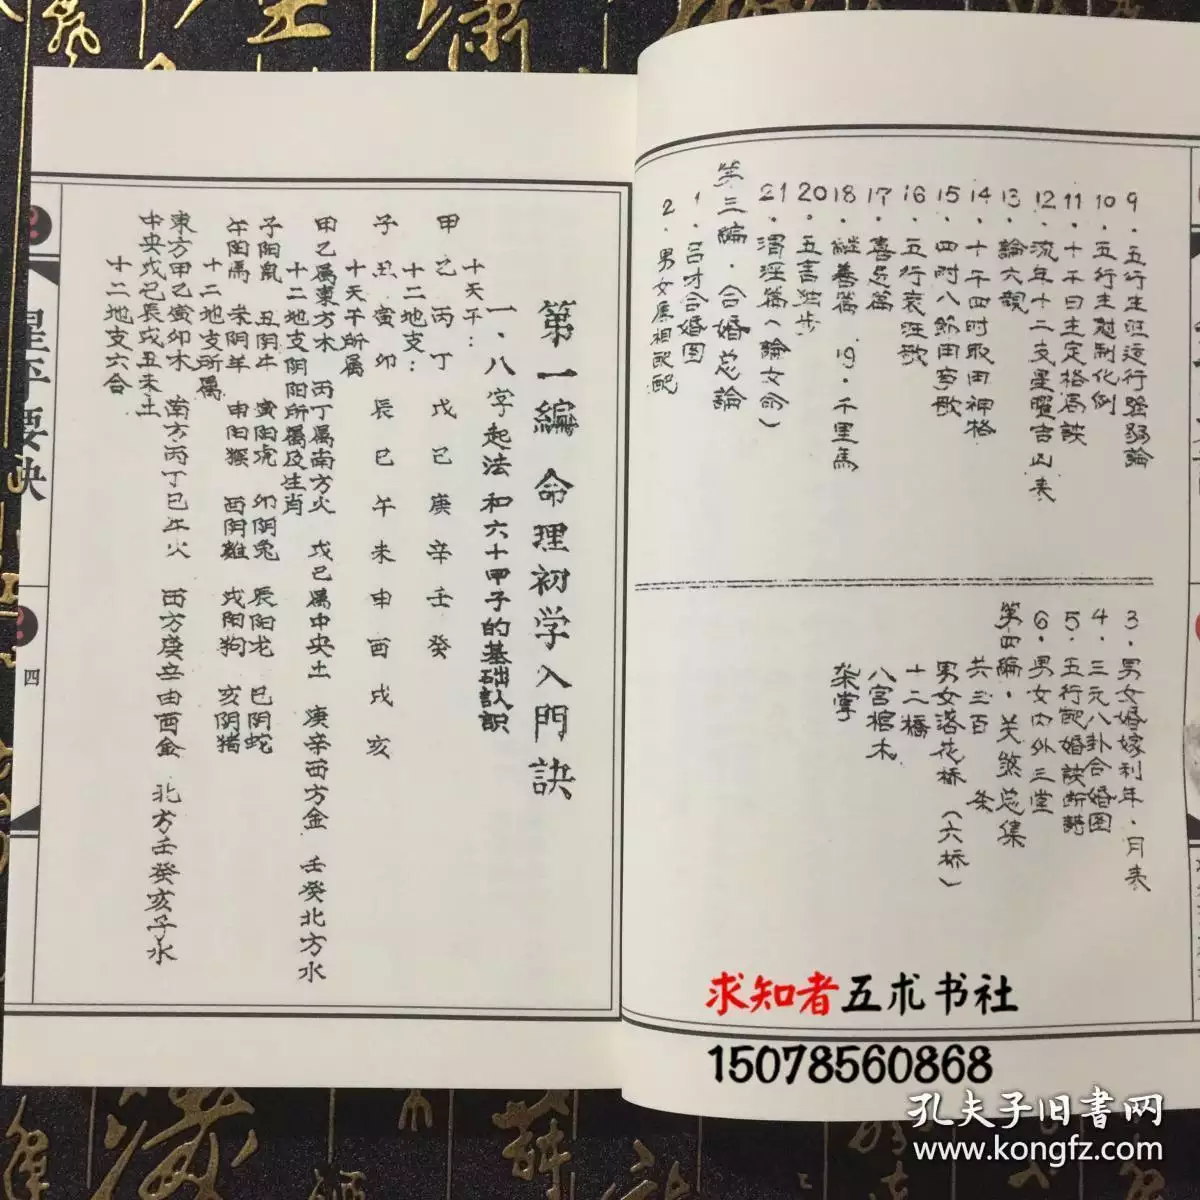 9．五行生旺运行强弱論
10．五行生尅制化例
11．十干日主定格局訣
12．流年十二支星曜吉凶表
13．論六親
14．十干四时取用神格
15．四时八節用事歌
16．五行衰旺歌
17．喜忌篇
18．継善篇　19．千里馬
20．五言独步
21．渭泾篇（論女命）
第三編．合婚总論
1．吕才合婚图
2．男女屬相配配
3．男女婚嫁利年．月表
4．三元八卦合婚图
5．五行配婚訣断
6．男女内外三堂
第四編．关煞总集
共三百　条
男女落花桥（六桥）
十二橋
八宫棺木
架掌
第一編　命理初学入門訣
一．八字起法和六十甲子的基础认识
十天干：
甲乙丙丁戊己庚辛壬癸
十二地支：
子丑寅卯辰巳午未申酉戌亥
十天干所属
甲乙属東方木　丙丁属南方火　戊己属中央土　庚辛西方金　壬癸北方水
十二地支阴阳所属及生肖
子阳鼠　丑阴牛　寅阳虎　卯阴兔　辰阳龙　巳阴蛇
午阳馬　未阴羊　申阳猴　酉阴雞　戌阳狗　亥阴猪
十二地支所属
東方甲乙寅卯木　南方丙丁巳午火　西方庚辛申酉金　北方壬癸亥子水
中央戊己辰戌丑未土
十二地支六合
星平要訣
四
求知者五术书社
15078560868
孔夫子旧書网
www.kongfz.com